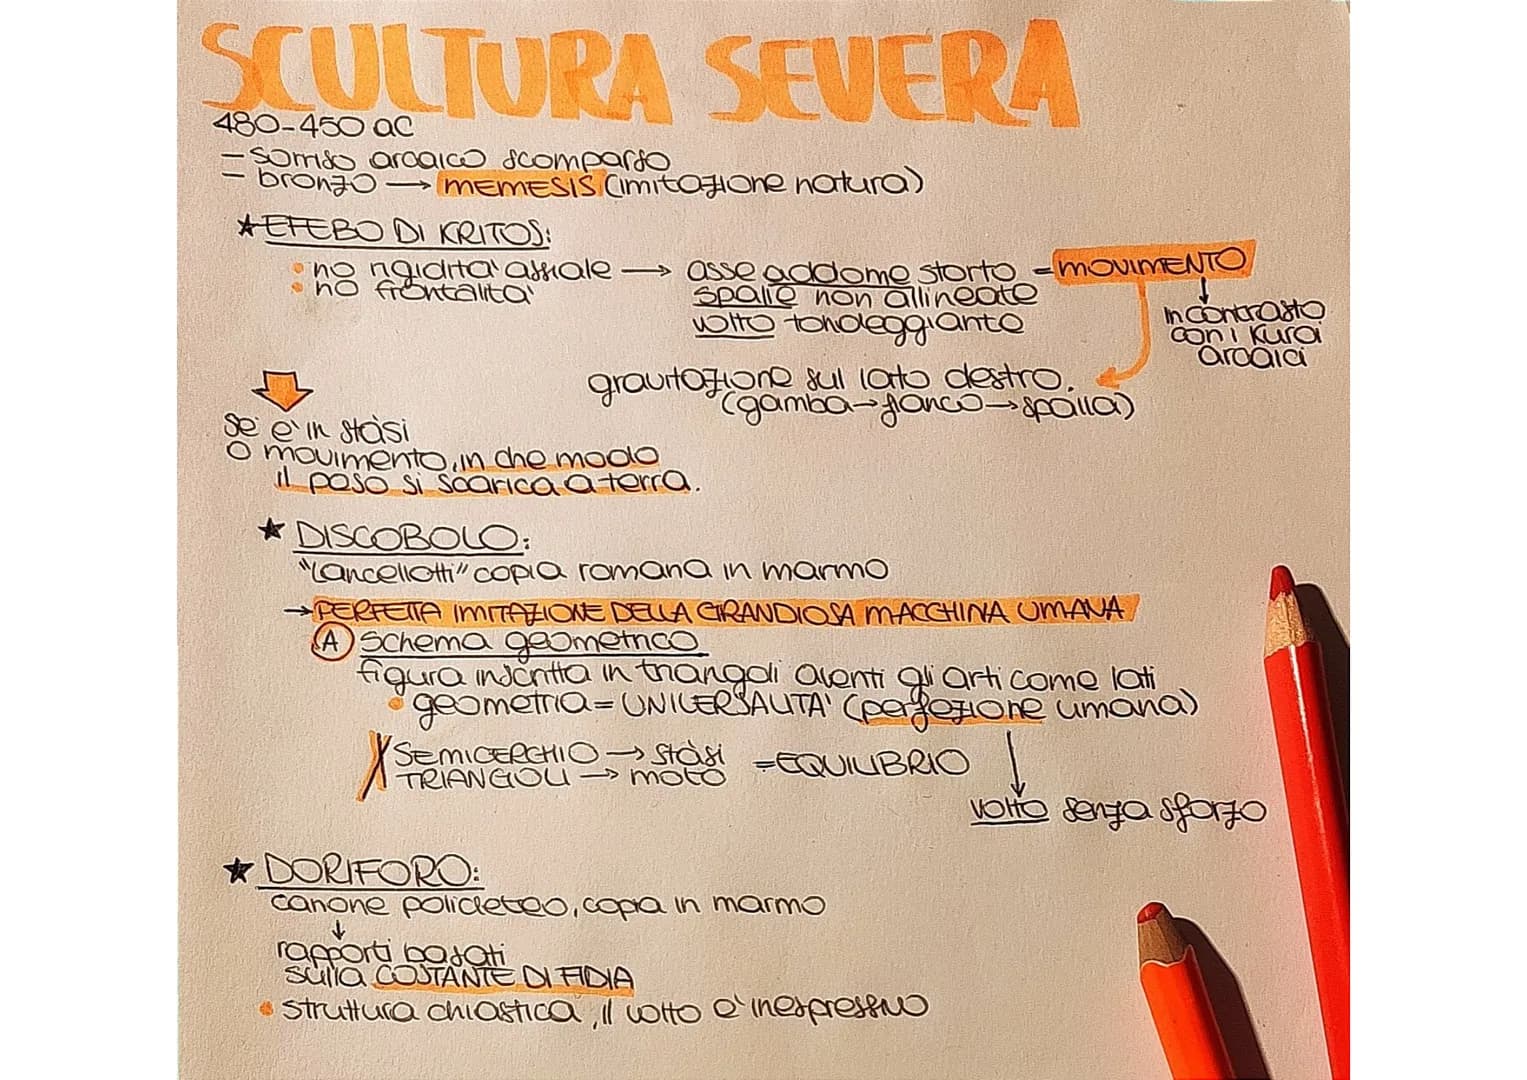 SCULTURA SEVERA
480-450 aC
- sorriso arcaico scomparso
- bronzo → MEMESIS (imitazione natura)
★ EFEBO DI KRITOS:
• no rigidità assiale → asse addome storto = MOVIMENTO
• no frontalità
spalle non allineate
volto tondeggiante
↓
in contrasto
con i kuroi
arcaici
gravitazione sul lato destro.
(gamba → fianco → spalla)
se è in stàsi
o movimento, in che modo
il peso si scarica a terra.
★ DISCOBOLO:
"Lancellotti" copia romana in marmo
→ PERFETTA IMITAZIONE DELLA GRANDIOSA MACCHINA UMANA
A schema geometrico
figura inscritta in triangoli aventi gli arti come lati
• geometria = UNIVERSALITA' (perfezione umana)
SEMICERCHIO → stàsi = EQUILIBRIO
TRIANGOLI → moto
↓
volto senza sforzo
★ DORIFORO:
canone policleteo, copia in marmo
↓
rapporti basati
sulla COSTANTE DI FIDIA
• struttura chiastica, il volto è inespressivo